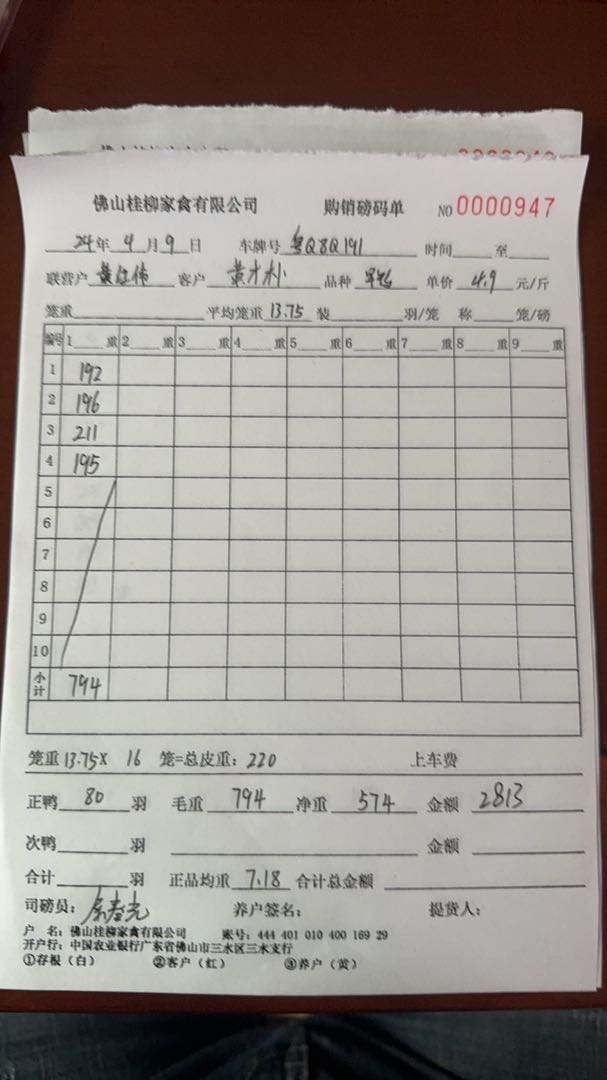 佛山桂柳家禽有限公司 购销磅码单 NO 0000947
24年 4月 9日 车牌号 粤Q8Q191 时间 至
联营户 黄 伟 客户 黄才朴 品种 单价 4.9 元/斤
笼重 平均笼重 13.75 装 羽/笼 称 笼/磅
编号 1 重 2 重 3 重 4 重 5 重 6 重 7 重 8 重 9 重
1 192
2 196
3 211
4 195
5
6
7
8
9
10
小计 794
笼重 13.75 X 16 笼=总皮重: 220 上车费
正鸭 80 羽 毛重 794 净重 574 金额 2813
次鸭 羽 金额
合计 羽 正品均重 7.18 合计总金额
司磅员: 养户签名: 提货人:
户 名: 佛山桂柳家禽有限公司 账号: 444 401 010 400 169 29
开户行: 中国农业银行广东省佛山市三水区三水支行
①存根（白） ②客户（红） ③养户（黄）